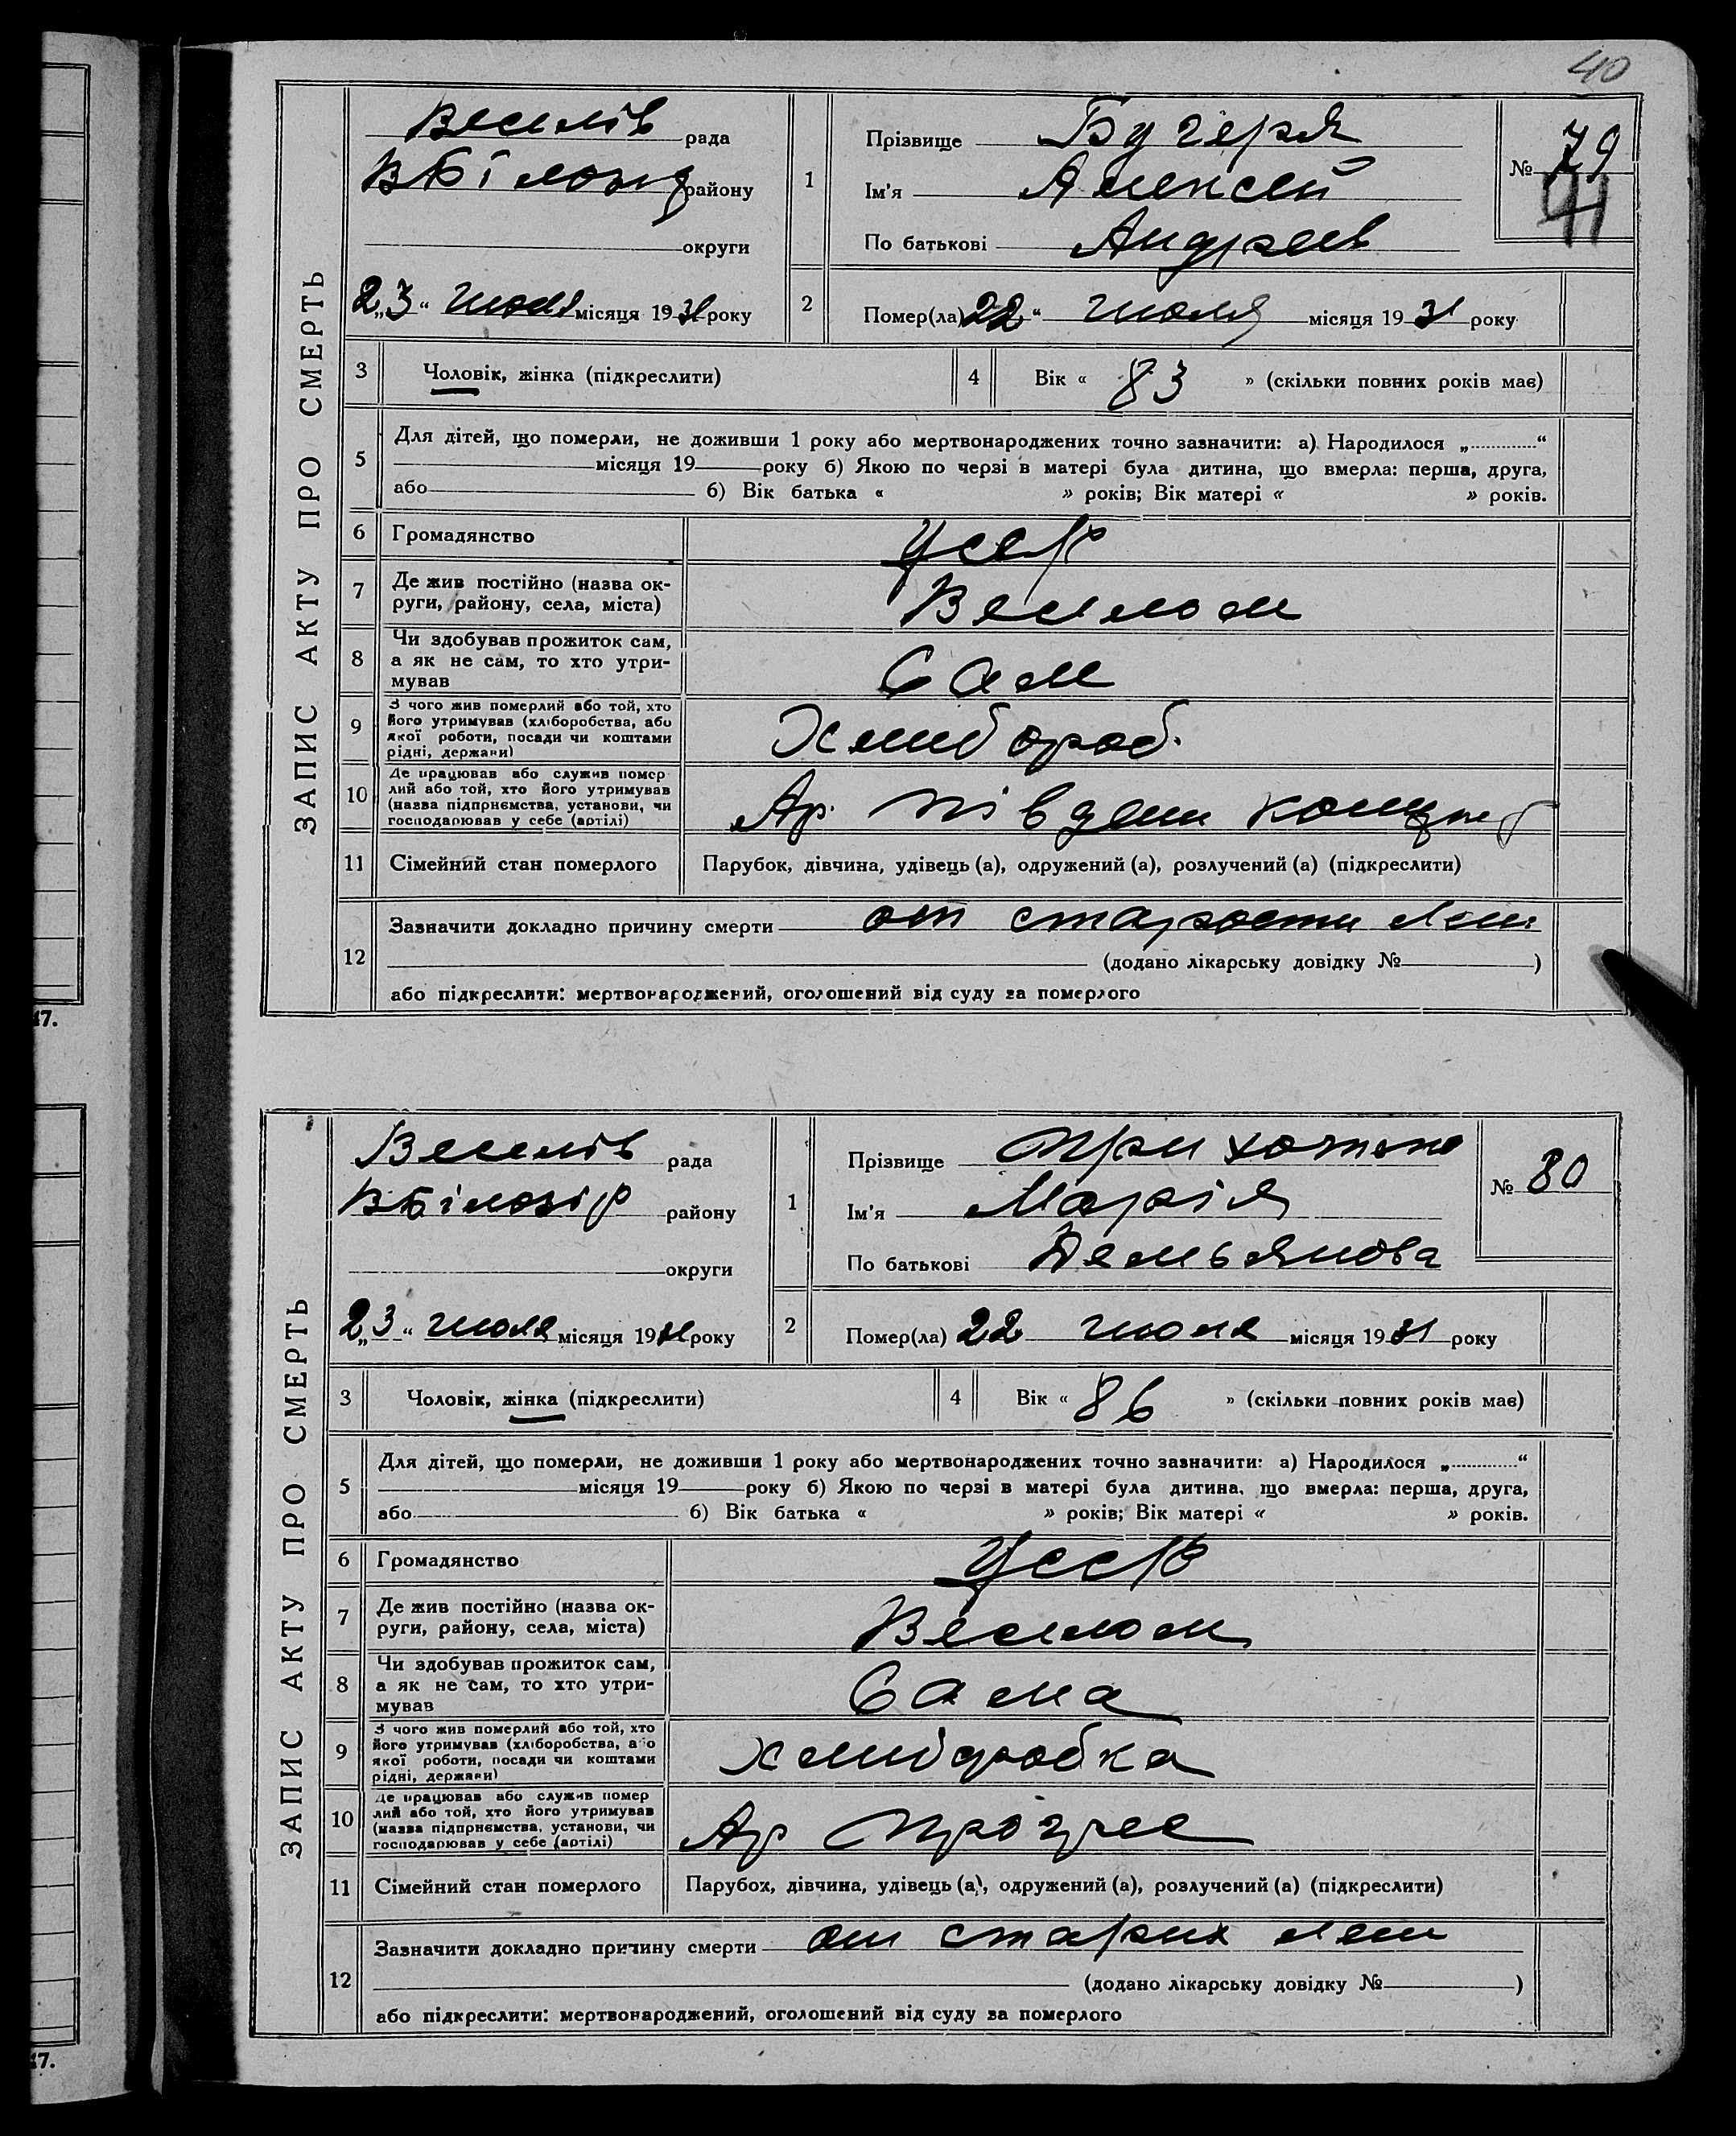 40
ЗАПИС АКТУ ПРО СМЕРТЬ
Веселів рада
району
округи
„23“ июля місяця 1931 року
1
Прізвище Бугеря
Ім'я Алексей
По батькові Андреев
№ 79
41
2
Помер(ла) 22 “ июля місяця 1931 року
3 Чоловік, жінка (підкреслити)
4 Вік « 83 » (скільки повних років має)
5 Для дітей, що померли, не доживши 1 року або мертвонароджених точно зазначити: а) Народилося „ “
місяця 19 року б) Якою по черзі в матері була дитина, що вмерла: перша, друга,
або б) Вік батька « » років; Вік матері « » років.
6 Громадянство УССР
7 Де жив постійно (назва ок-
руги, району, села, міста) Веселом
8 Чи здобував прожиток сам,
а як не сам, то хто утри-
мував Сам
9 З чого жив померлий або той, хто
його утримував (хліборобства, або
якої роботи, посади чи коштами
рідні, держави) Хлибороб.
10 Де працював або служив помер
лий або той, хто його утримував
(назва підприємства, установи, чи
господарював у себе (артілі) Ар.
11 Сімейний стан померлого Парубок, дівчина, удівець (а), одружений (а), розлучений (а) (підкреслити)
12 Зазначити докладно причину смерти от старости лет
(додано лікарську довідку № )
або підкреслити: мертвонароджений, оголошений від суду за померлого
47.
ЗАПИС АКТУ ПРО СМЕРТЬ
Веселів рада
ВБілозір району
округи
„23“ июля місяця 1931 року
1
Прізвище
Ім'я Марія
По батькові Демьянова
№ 80
2
Помер(ла) 22 июля місяця 1931 року
3 Чоловік, жінка (підкреслити)
4 Вік « 86 » (скільки повних років має)
5 Для дітей, що померли, не доживши 1 року або мертвонароджених точно зазначити: а) Народилося „ “
місяця 19 року б) Якою по черзі в матері була дитина, що вмерла: перша, друга,
або б) Вік батька « » років; Вік матері « » років.
6 Громадянство УССР
7 Де жив постійно (назва ок-
руги, району, села, міста) Веселом
8 Чи здобував прожиток сам,
а як не сам, то хто утри-
мував Сама
9 З чого жив померлий або той, хто
його утримував (хліборобства, або
якої роботи, посади чи коштами
рідні, держави) хлибробка
10 Де працював або служив помер
лий або той, хто його утримував
(назва підприємства, установи, чи
господарював у себе (артілі) Ар Прогрес
11 Сімейний стан померлого Парубок, дівчина, удівець (а), одружений (а), розлучений (а) (підкреслити)
12 Зазначити докладно причину смерти от старих лет
(додано лікарську довідку № )
або підкреслити: мертвонароджений, оголошений від суду за померлого
47.